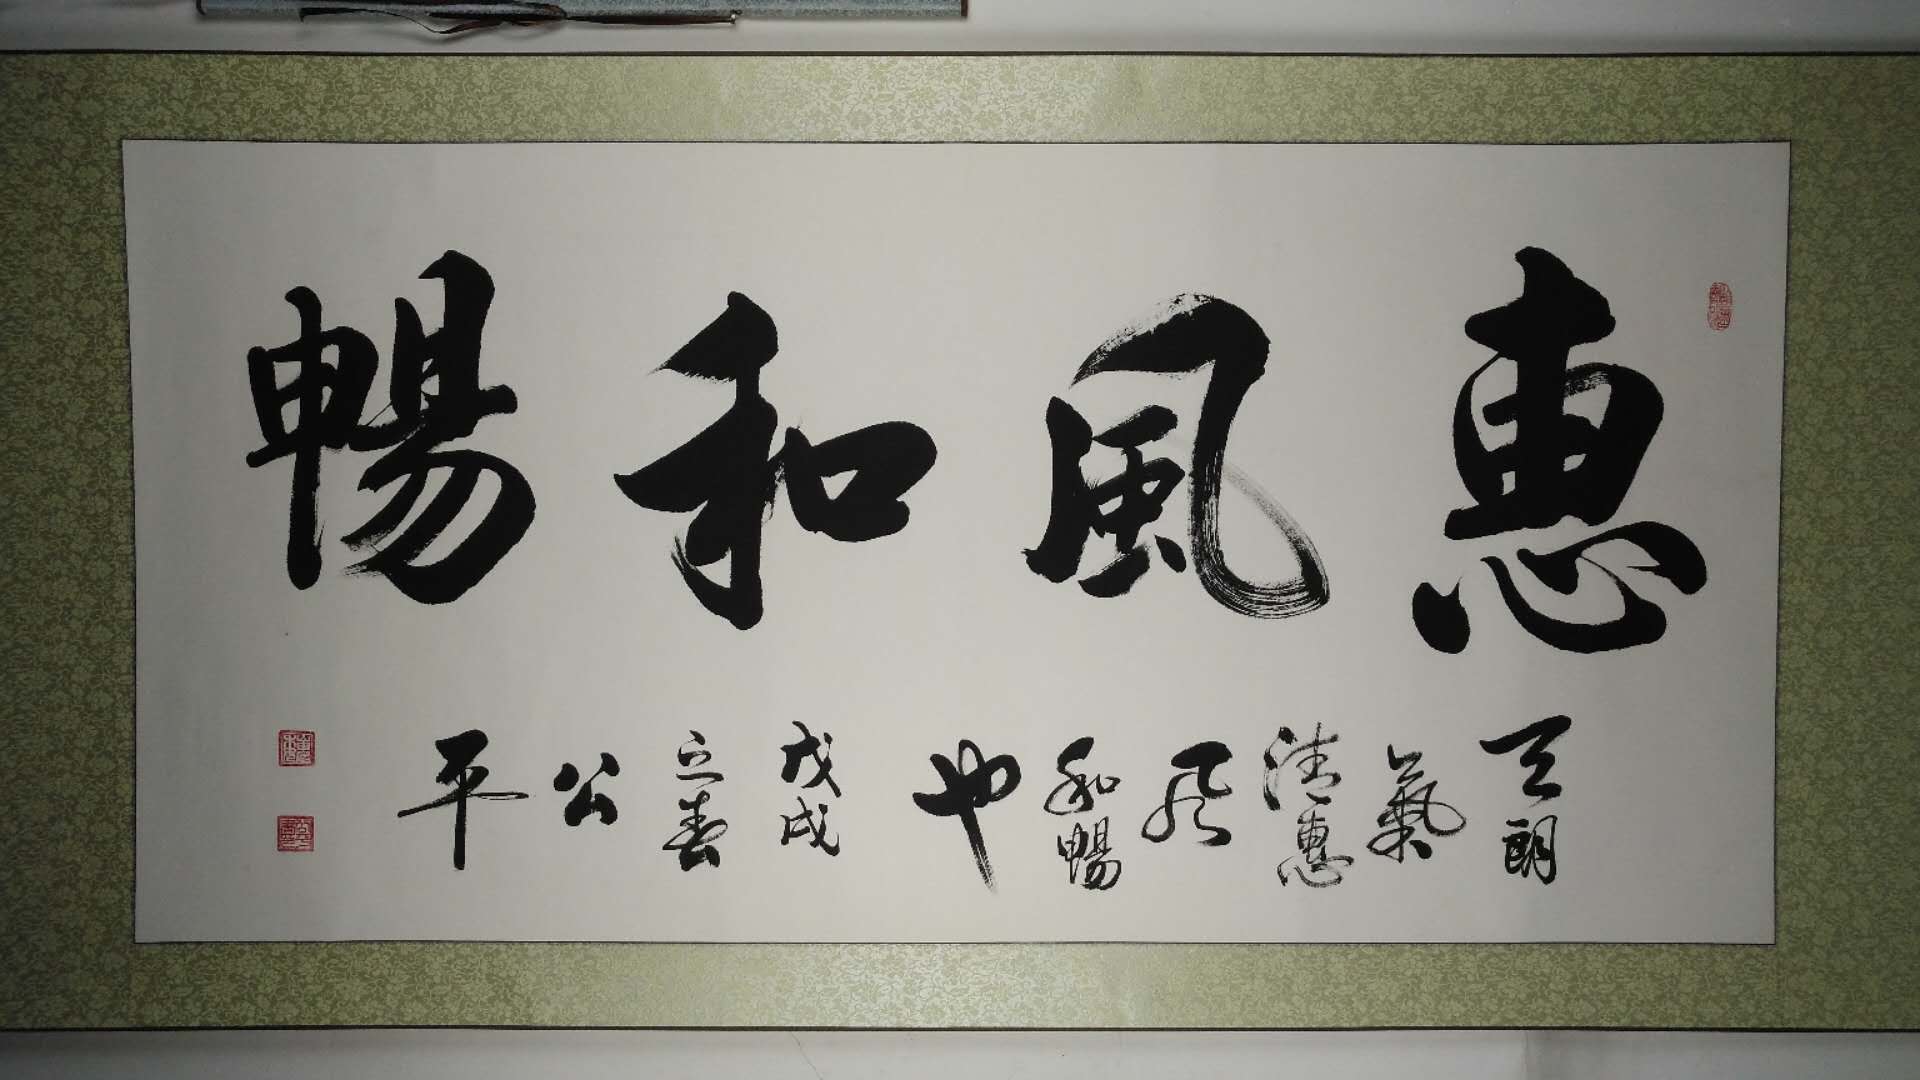 惠風和暢
天朗氣清惠风和暢也戊戌立春公平